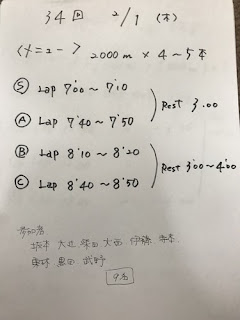 34回 2/1 (木)
<メニュー> 2000m × 4～5本
Ⓢ Lap 7'00～7'10
Rest 3.00
Ⓐ Lap 7'40～7'50
Ⓑ Lap 8'10～8'20
Rest 3'00～4'00
Ⓒ Lap 8'40～8'50
参加者
坂本 大辻 柴田 大西 伊藤
栗林 黒田 武野
9名